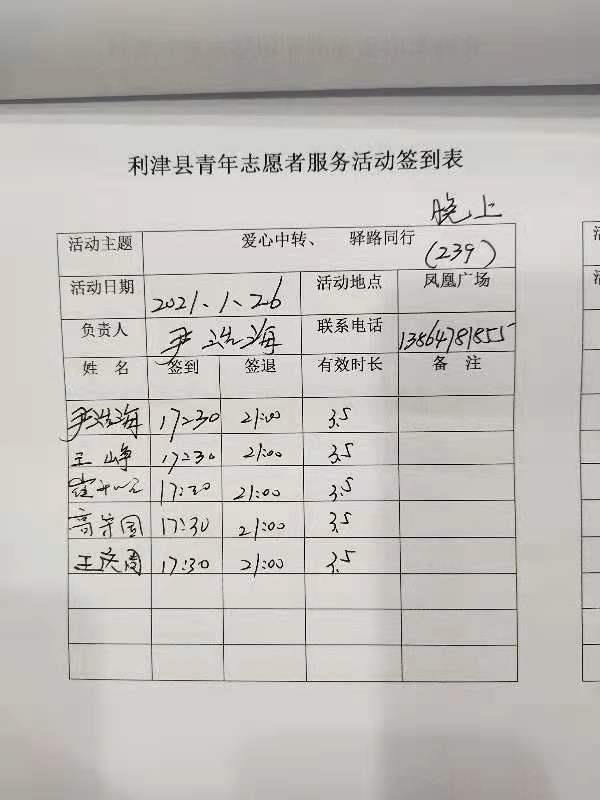 利津县青年志愿者服务活动签到表
晚上
活动主题 爱心中转、 驿路同行 (239)
活动日期 2021、1、26 活动地点 凤凰广场
负责人 尹浩海 联系电话 13864781855
姓 名 签到 签退 有效时长 备 注
尹浩海 17:30 21:00 3.5
王峥 17:30 21:00 3.5
17:30 21:00 3.5
高荣国 17:30 21:00 3.5
王庆周 17:30 21:00 3.5